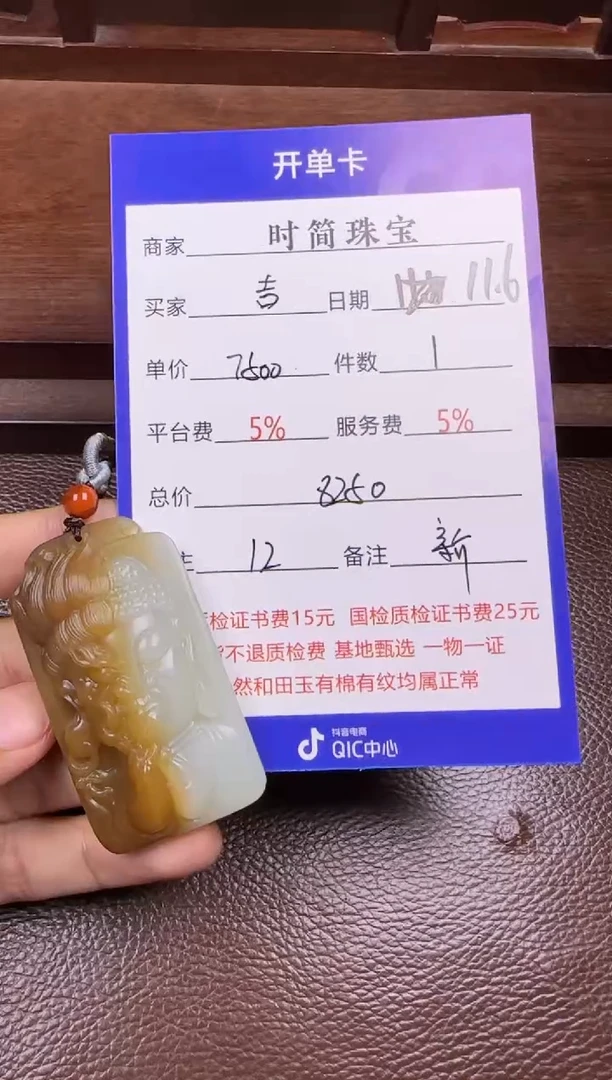 开单卡
商家 时简珠宝
买家 吉 日期 11.6
单价 7500 件数 1
平台费 5% 服务费 5%
总价 8250
12 备注 新
检证书费15元 国检质检证书费25元
不退质检费 基地甄选 一物一证
然和田玉有棉有纹均属正常
抖音电商
QIC中心